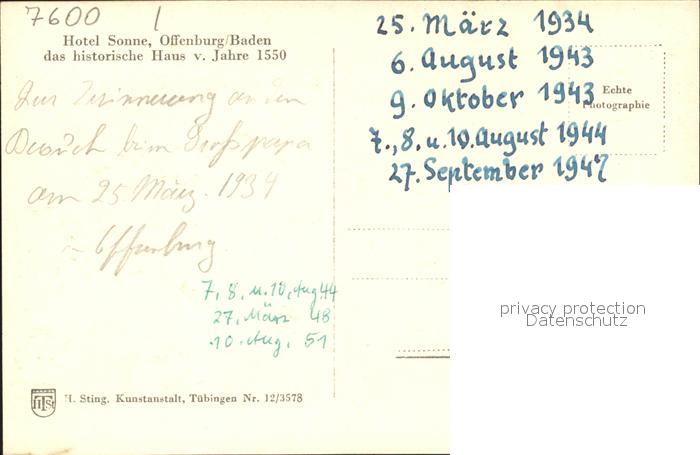 7600 /
Hotel Sonne, Offenburg/Baden
das historische Haus v. Jahre 1550
Zur Erinnerung an den
Besuch beim Großpapa
am 25 März. 1934
in Offenburg
7., 8. u. 10. Aug 44
27. März 48
10. Aug. 51
H. Sting. Kunstanstalt, Tübingen Nr. 12/3578
25. März 1934
6. August 1943
9. Oktober 1943
7., 8. u. 10. August 1944
27. September 1947
Echte
Photographie
privacy protection
Datenschutz